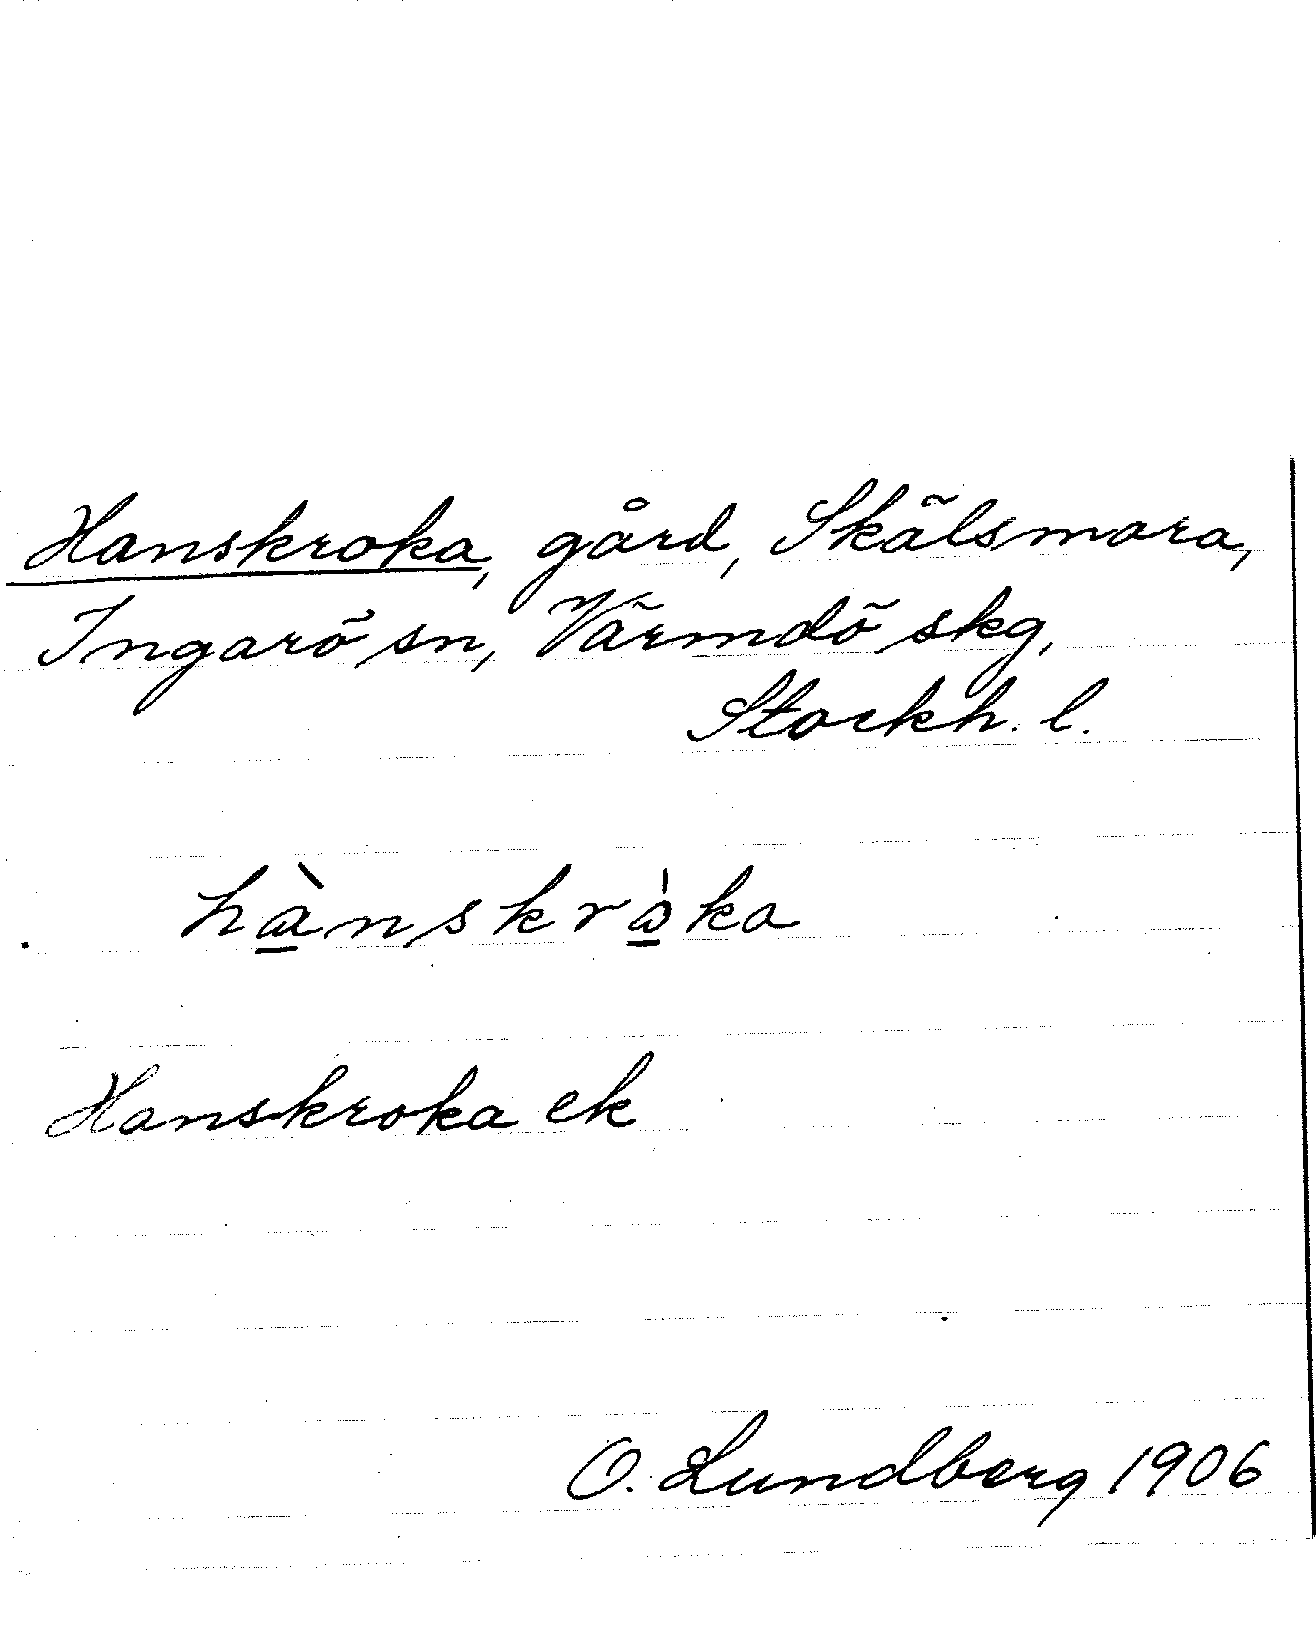 Hanskroka, gård, Skälsmara,
Ingarö sn, Värmdö skg,
Stockh. l.
hànskròka
Hanskroka ek
O. Lundberg 1906